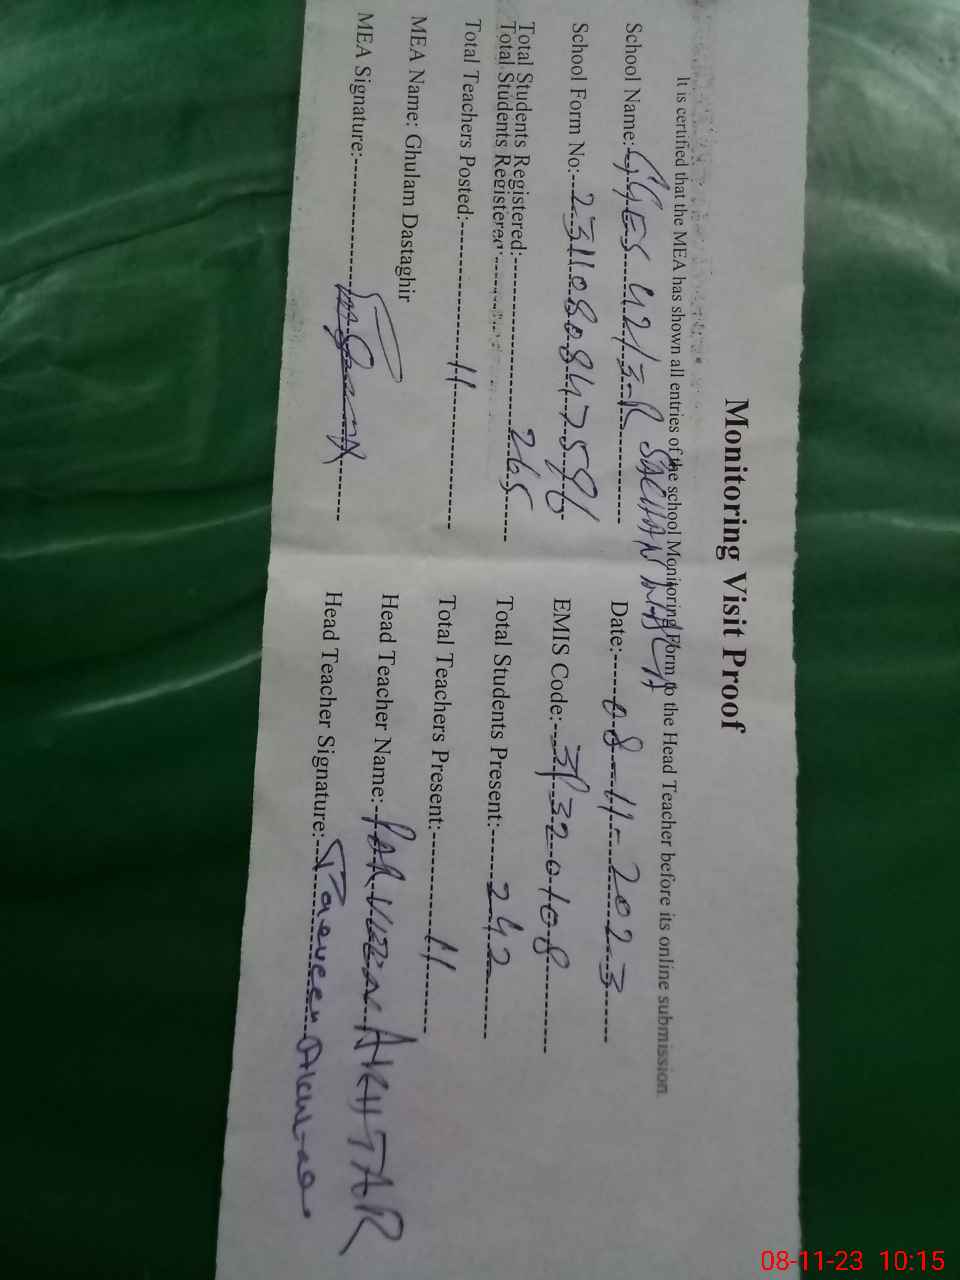 Monitoring Visit Proof
It is certified that the MEA has shown all entries of the school Monitoring Form to the Head Teacher before its online submission.
School Name: GGES 42/3-R SACHAN WALA Date: 08-11-2023
School Form No: 231108084759 EMIS Code: 31320108
Total Students Registered: 265 Total Students Present: 242
Total Students Registered
Total Teachers Posted: 11 Total Teachers Present: 11
MEA Name: Ghulam Dastaghir Head Teacher Name: PARVEEN AKHTAR
MEA Signature: Head Teacher Signature: Parveen Akhtar
08-11-23 10:15